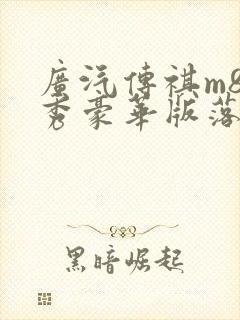 廣汽傳祺m8
秀豪華版落
黑暗崛起